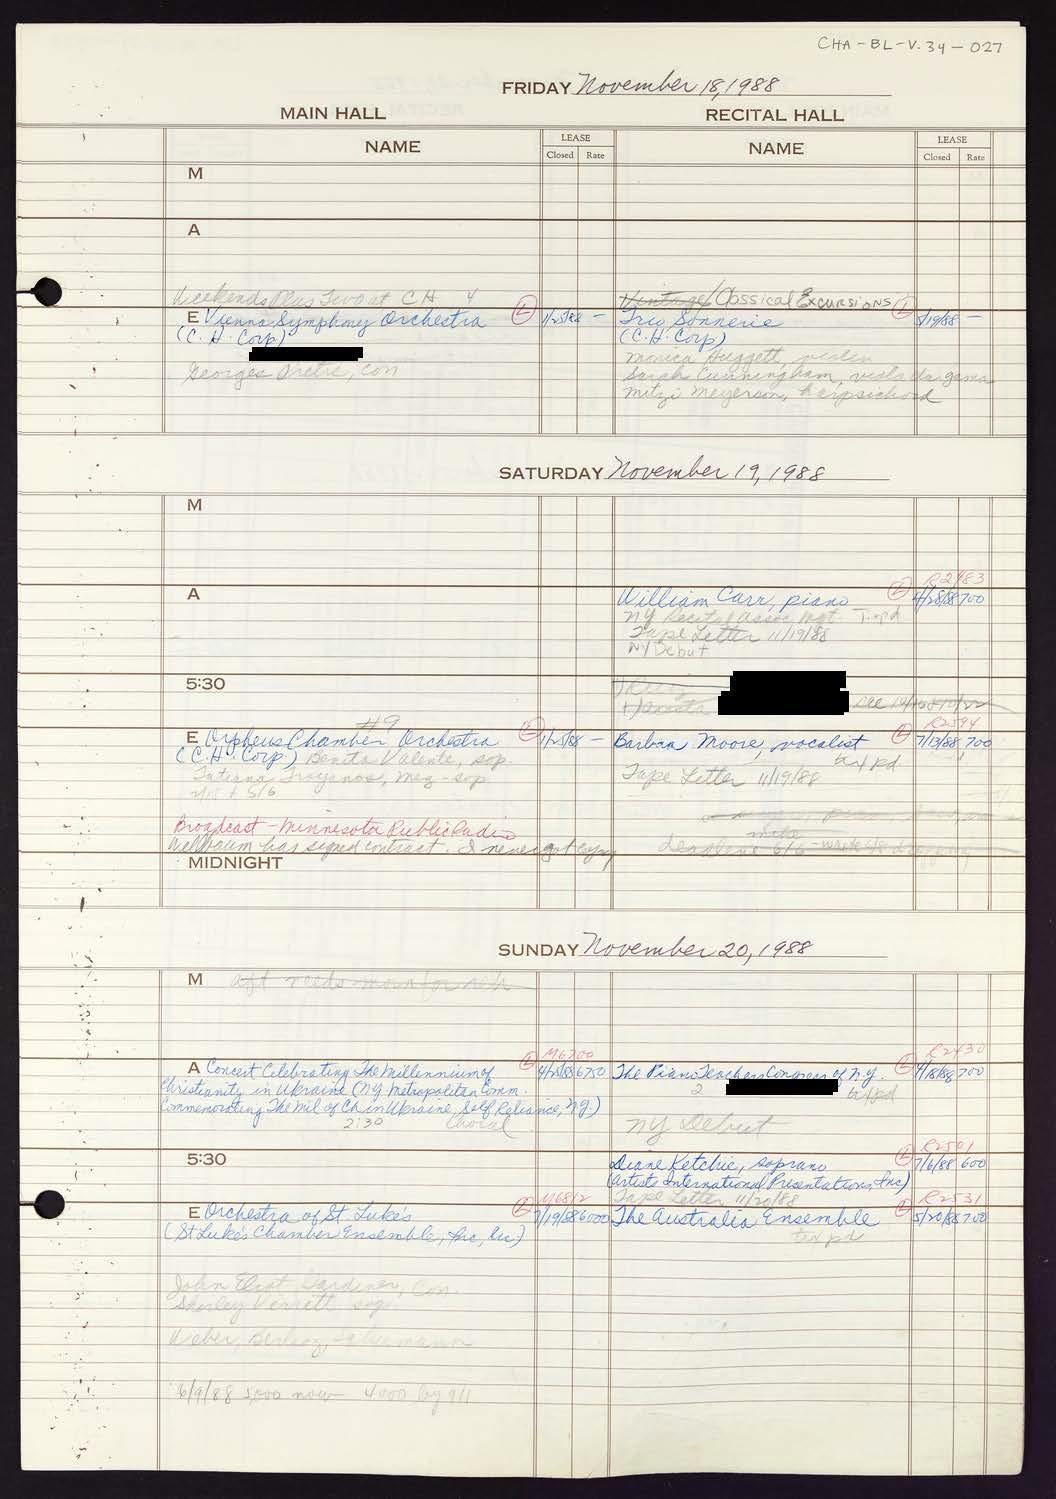 CHA-BL-V.34-027
FRIDAY November 18, 1988
MAIN HALL
RECITAL HALL
NAME
LEASE
Closed Rate
NAME
LEASE
Closed Rate
M
A
Weekends Plus Two at CH 4
E Vienna Symphony Orchestra L 1/25/88 —
(C.H. Corp)
Georges Pretre, con
Vintage/Classical Excursions L
Trio Sonnerie 5/19/88 —
(C.H. Corp)
Monica Huggett, violin
Sarah Cunningham, viola da gamba
Mitzi Meyerson, harpsichord
SATURDAY November 19, 1988
M
A
R2483
William Carr, piano L 4/28/88 700
NY Recital Assoc Mgt.
Tape Letter 11/19/88
NY Debut
5:30
#9
E Orpheus Chamber Orchestra L 1/25/88 —
(C.H. Corp.) Benita Valente, sop.
Tatiana Troyanos, mez-sop
Broadcast - Minnesota Public Radio
has signed contract. I never got copy
R2594
Barbara Moore, vocalist L 7/13/88 700
tax pd
Tape Letter 11/19/88
deadline 6/6
MIDNIGHT
SUNDAY November 20, 1988
M aft needs morn for reh
M6700
A Concert Celebrating The Millennium of L 4/25/88 6750
Christianity in Ukraine (NY Metropolitan Comm.
Commemorating The Mil of Ch in Ukraine, Self Reliance, N.Y.)
2:30 Choral
R2430
The Piano Teachers Congress of N.Y. L 4/18/88 700
2 tax pd
NY Debut
5:30
R2501
Diane Ketchie, soprano L 7/6/88 600
(Artists International Presentations, Inc)
Tape Letter 11/20/88
M6812
E Orchestra of St Luke's L 7/19/88 6000
(St Luke's Chamber Ensemble, Inc,
R2531
The Australia Ensemble L 5/20/88 700
tax pd
John Eliot Gardiner, Con.
Shirley Verrett, sop.
Weber, Berlioz, Schumann
6/9/88 5,000 now 4000 by 9/1